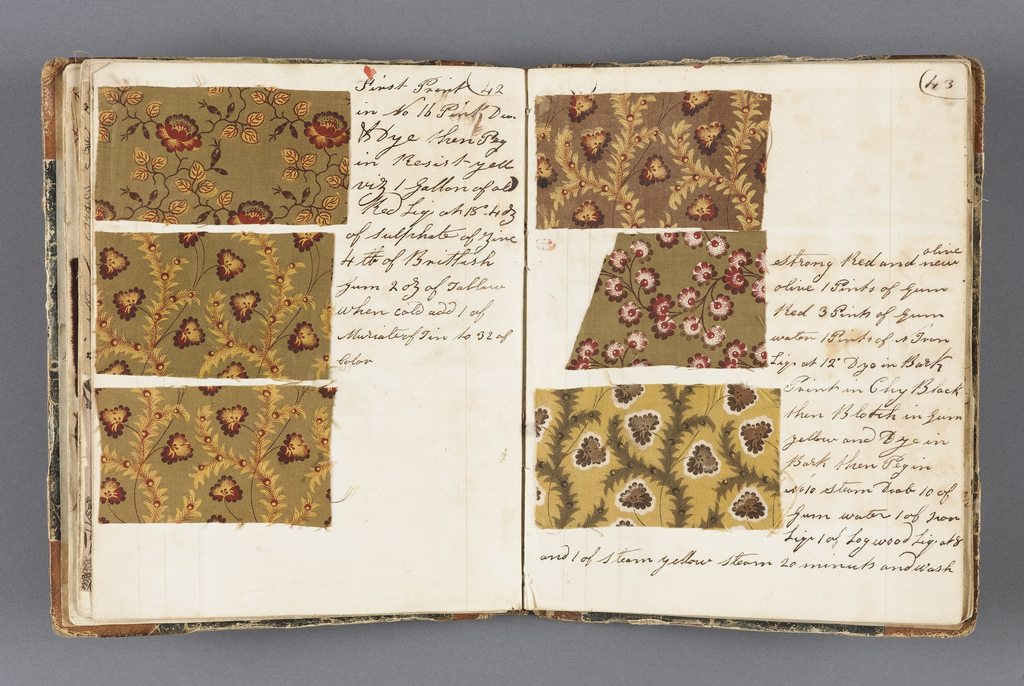 First Print 42
in No 16 Pink Dun
& Dye then Peg
in Resist yell
viz 1 Gallon of al
Red Liq. at 18° 4 oz
of sulphate of Zinc
4 lb of Brittish
Gum 2 oz of Tallow
when cold add 1 of
Muriate of Tin to 32 of
Color
43
Strong Red and new olive
olive 1 Pints of Gum
Red 3 Pints of Gum
water 1 Pints of Iron
Liqr at 12° Dye in Bark
Print in Chy Black
then Blotch in Gum
yellow and Dye in
Bark then Peg in
No 10 steam Drab 10 of
Gum water 1 of Iron
Liqr 1 of Logwood Liqr at 8
and 1 of steam yellow steam 20 minuts and wash